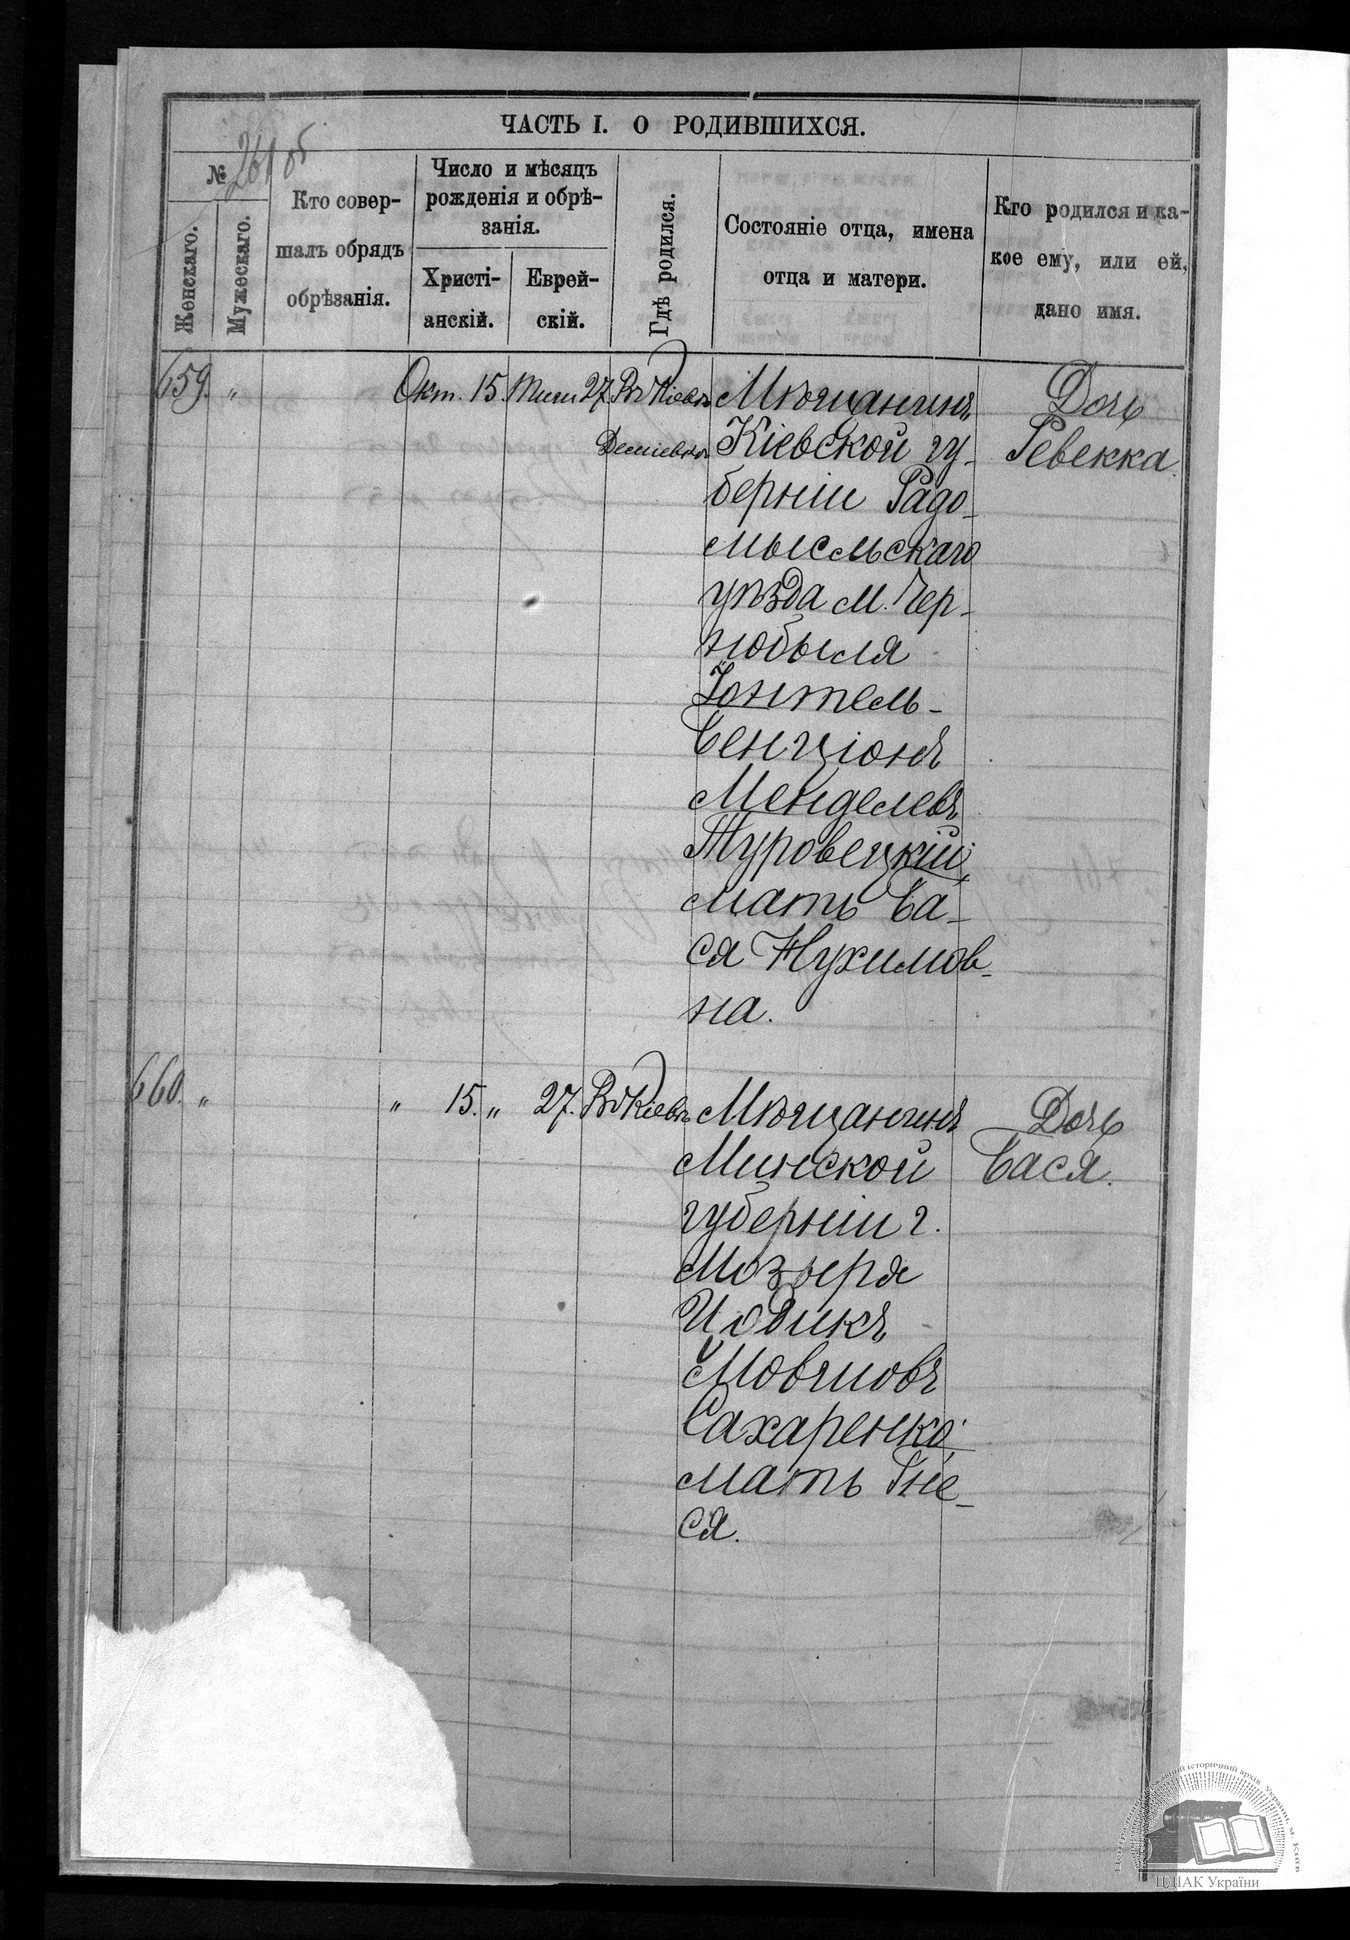 ЧАСТЬ I. О РОДИВШИХСЯ.
№
261 об
Женскаго.
Мужескаго.
Кто совер-
шалъ обрядъ
обрѣзанія.
Число и мѣсяцъ
рожденія и обрѣ-
занія.
Христі-
анскій.
Еврей-
скій.
Гдѣ родился.
Состояніе отца, имена
отца и матери.
Кто родился и ка-
кое ему, или ей,
дано имя.
659. „ Окт. 15. Тиши 27. Въ Кіевѣ Мѣщанинъ Дочь
Деміевкѣ Кіевской гу- Ревекка.
берніи Радо-
мысльскаго
уѣзда м. Чер-
нобыля
Іонтель-
Бенціонъ
Менделевъ
Туровецкій,
мать Ба-
ся Нухимов-
на.
660. „ „ 15. „ 27. Въ Кіевѣ Мѣщанинъ Дочь
Минской Бася.
губерніи г.
Мозыря
Иодикъ
Мовшовъ
Сахаренко,
мать Гне-
ся.
Центральний державний історичний архів України, м. Київ
ЦДІАК України